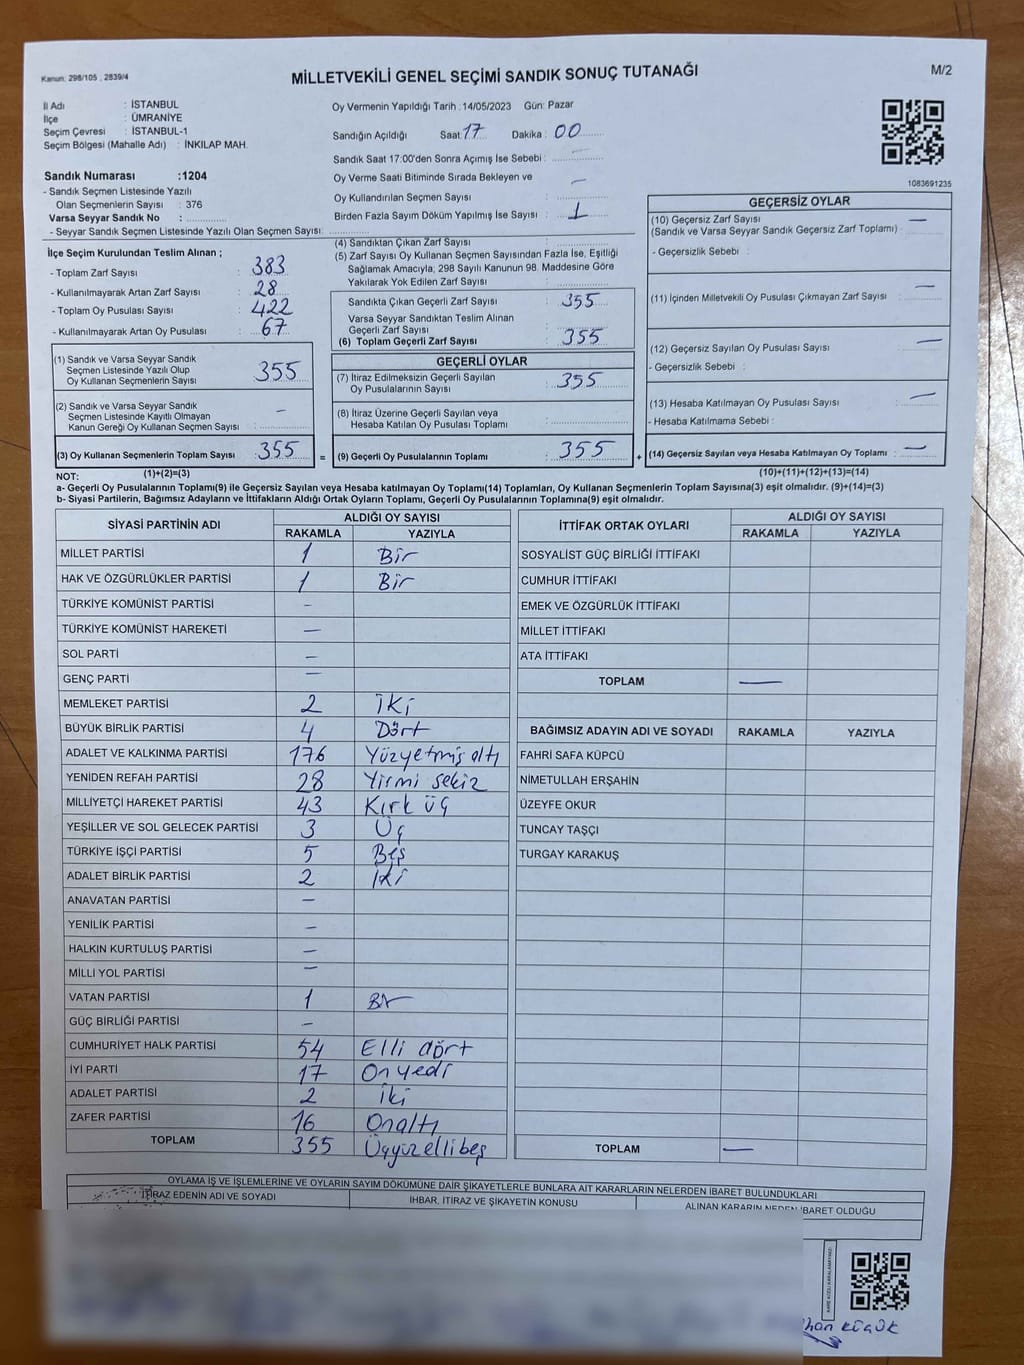 Kanun: 298/105 , 2839/4
MİLLETVEKİLİ GENEL SEÇİMİ SANDIK SONUÇ TUTANAĞI
M/2
İl Adı : İSTANBUL
İlçe : ÜMRANİYE
Seçim Çevresi : İSTANBUL-1
Seçim Bölgesi (Mahalle Adı) : İNKILAP MAH.
Sandık Numarası :1204
- Sandık Seçmen Listesinde Yazılı
Olan Seçmenlerin Sayısı : 376
Varsa Seyyar Sandık No :
- Seyyar Sandık Seçmen Listesinde Yazılı Olan Seçmen Sayısı:
Oy Vermenin Yapıldığı Tarih :14/05/2023 Gün: Pazar
Sandığın Açıldığı Saat: 17 Dakika : 00
Sandık Saat 17:00'den Sonra Açımış İse Sebebi : –
Oy Verme Saati Bitiminde Sırada Bekleyen ve
Oy Kullandırılan Seçmen Sayısı –
Birden Fazla Sayım Döküm Yapılmış İse Sayısı : 1
1083691235
İlçe Seçim Kurulundan Teslim Alınan ;
- Toplam Zarf Sayısı : 383
- Kullanılmayarak Artan Zarf Sayısı : 28
- Toplam Oy Pusulası Sayısı : 422
- Kullanılmayarak Artan Oy Pusulası : 67
(1) Sandık ve Varsa Seyyar Sandık
Seçmen Listesinde Yazılı Olup
Oy Kullanan Seçmenlerin Sayısı : 355
(2) Sandık ve Varsa Seyyar Sandık
Seçmen Listesinde Kayıtlı Olmayan
Kanun Gereği Oy Kullanan Seçmen Sayısı : –
(3) Oy Kullanan Seçmenlerin Toplam Sayısı : 355
=
(4) Sandıktan Çıkan Zarf Sayısı :
(5) Zarf Sayısı Oy Kullanan Seçmen Sayısından Fazla İse, Eşitliği
Sağlamak Amacıyla, 298 Sayılı Kanunun 98. Maddesine Göre
Yakılarak Yok Edilen Zarf Sayısı :
Sandıkta Çıkan Geçerli Zarf Sayısı : 355
Varsa Seyyar Sandıktan Teslim Alınan
Geçerli Zarf Sayısı :
(6) Toplam Geçerli Zarf Sayısı : 355
GEÇERLİ OYLAR
(7) İtiraz Edilmeksizin Geçerli Sayılan
Oy Pusulalarının Sayısı : 355
(8) İtiraz Üzerine Geçerli Sayılan veya
Hesaba Katılan Oy Pusulası Toplamı :
(9) Geçerli Oy Pusulalarının Toplamı : 355
+
GEÇERSİZ OYLAR
(10) Geçersiz Zarf Sayısı –
(Sandık ve Varsa Seyyar Sandık Geçersiz Zarf Toplamı) :
- Geçersizlik Sebebi :
(11) İçinden Milletvekili Oy Pusulası Çıkmayan Zarf Sayısı : –
(12) Geçersiz Sayılan Oy Pusulası Sayısı : –
- Geçersizlik Sebebi :
(13) Hesaba Katılmayan Oy Pusulası Sayısı : –
- Hesaba Katılmama Sebebi :
(14) Geçersiz Sayılan veya Hesaba Katılmayan Oy Toplamı : –
NOT: (1)+(2)=(3) (10)+(11)+(12)+(13)=(14)
a- Geçerli Oy Pusulalarının Toplamı(9) ile Geçersiz Sayılan veya Hesaba katılmayan Oy Toplamı(14) Toplamları, Oy Kullanan Seçmenlerin Toplam Sayısına(3) eşit olmalıdır. (9)+(14)=(3)
b- Siyasi Partilerin, Bağımsız Adayların ve İttifakların Aldığı Ortak Oyların Toplamı, Geçerli Oy Pusulalarının Toplamına(9) eşit olmalıdır.
SİYASİ PARTİNİN ADI ALDIĞI OY SAYISI
RAKAMLA YAZIYLA
MİLLET PARTİSİ 1 Bir
HAK VE ÖZGÜRLÜKLER PARTİSİ 1 Bir
TÜRKİYE KOMÜNİST PARTİSİ –
TÜRKİYE KOMÜNİST HAREKETİ –
SOL PARTİ –
GENÇ PARTİ –
MEMLEKET PARTİSİ 2 İki
BÜYÜK BİRLİK PARTİSİ 4 Dört
ADALET VE KALKINMA PARTİSİ 176 Yüzyetmiş altı
YENİDEN REFAH PARTİSİ 28 Yirmi sekiz
MİLLİYETÇİ HAREKET PARTİSİ 43 Kırk üç
YEŞİLLER VE SOL GELECEK PARTİSİ 3 Üç
TÜRKİYE İŞÇİ PARTİSİ 5 Beş
ADALET BİRLİK PARTİSİ 2 İki
ANAVATAN PARTİSİ –
YENİLİK PARTİSİ –
HALKIN KURTULUŞ PARTİSİ –
MİLLİ YOL PARTİSİ –
VATAN PARTİSİ 1 Bir
GÜÇ BİRLİĞİ PARTİSİ –
CUMHURİYET HALK PARTİSİ 54 Elli dört
İYİ PARTİ 17 Onyedi
ADALET PARTİSİ 2 İki
ZAFER PARTİSİ 16 Onaltı
TOPLAM 355 Üçyüzellibeş
İTTİFAK ORTAK OYLARI ALDIĞI OY SAYISI
RAKAMLA YAZIYLA
SOSYALİST GÜÇ BİRLİĞİ İTTİFAKI
CUMHUR İTTİFAKI
EMEK VE ÖZGÜRLÜK İTTİFAKI
MİLLET İTTİFAKI
ATA İTTİFAKI
TOPLAM –
BAĞIMSIZ ADAYIN ADI VE SOYADI RAKAMLA YAZIYLA
FAHRİ SAFA KÜPCÜ
NİMETULLAH ERŞAHİN
ÜZEYFE OKUR
TUNCAY TAŞÇI
TURGAY KARAKUŞ
TOPLAM –
OYLAMA İŞ VE İŞLEMLERİNE VE OYLARIN SAYIM DÖKÜMÜNE DAİR ŞİKAYETLERLE BUNLARA AİT KARARLARIN NELERDEN İBARET BULUNDUKLARI
İTİRAZ EDENİN ADI VE SOYADI İHBAR, İTİRAZ VE ŞİKAYETİN KONUSU ALINAN KARARIN NEDEN İBARET OLDUĞU
KARE KODU KARALAMAYINIZ!
küçük